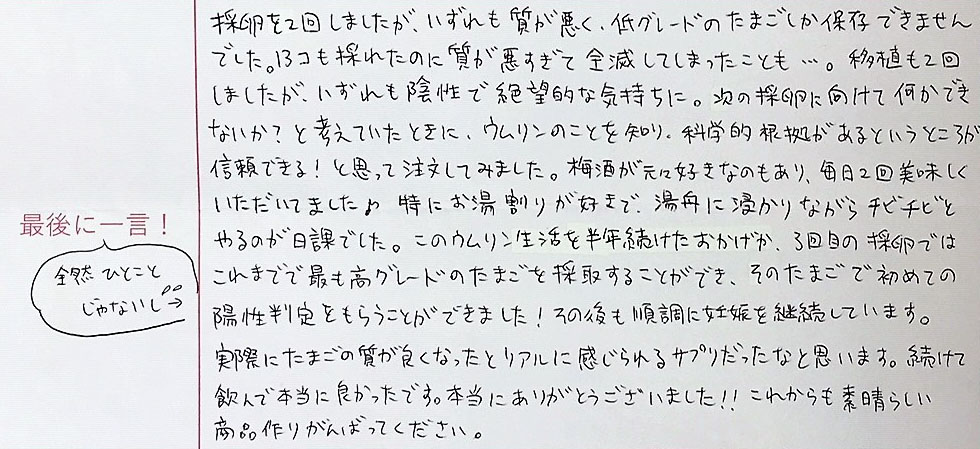 採卵を2回しましたが、いずれも質が悪く、低グレードのたまごしか保存できません
でした。13コも採れたのに質が悪すぎて全滅してしまったことも…。移植も2回
しましたが、いずれも陰性で絶望的な気持ちに。次の採卵に向けて何かでき
ないか?と考えていたときに、ウムリンのことを知り、科学的根拠があるというところが
信頼できる!と思って注文してみました。梅酒が元々好きなのもあり、毎日2回美味しく
いただいてました♪ 特にお湯割りが好きで、湯舟に浸かりながらチビチビと
やるのが日課でした。このウムリン生活を半年続けたおかげか、3回目の採卵では
これまでで最も高グレードのたまごを採取することができ、そのたまごで初めての
陽性判定をもらうことができました!その後も順調に妊娠を継続しています。
実際にたまごの質が良くなったとリアルに感じられるサプリだったなと思います。続けて
飲んで本当に良かったです。本当にありがとうございました!!これからも素晴らしい
商品作りがんばってください。
最後に一言!
全然ひとこと
じゃないし→